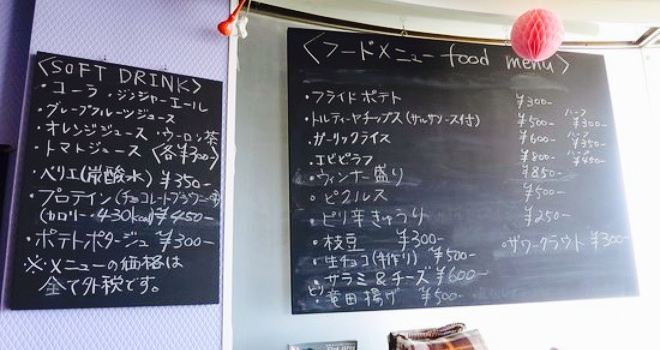 〈SOFT DRINK〉
・コーラ・ジンジャーエール
・グレープフルーツジュース
・オレンジジュース・ウーロン茶
・トマトジュース〈各¥300-〉
・ペリエ(炭酸水) ¥350-
・プロテイン(チョコレートブラウニー味)
(カロリー・430kcal) ¥450-
・ポテトポタージュ ¥300-
※・メニューの価格は
全て外税です。
〈フードメニュー food menu〉
・フライドポテト ¥300-
・トルティーヤチップス(サルサソース付) ¥500- ハーフ ¥300-
・ガーリックライス ¥600- ハーフ ¥350-
・エビピラフ ¥800- ハーフ ¥450-
・ウィンナー盛り ¥850-
・ピクルス ¥500-
・ピリ辛きゅうり ¥250-
・枝豆 ¥300- ・ザワークラウト ¥300-
・生チョコ(手作り) ¥500-
・サラミ&チーズ ¥600-
竜田揚げ ¥500-